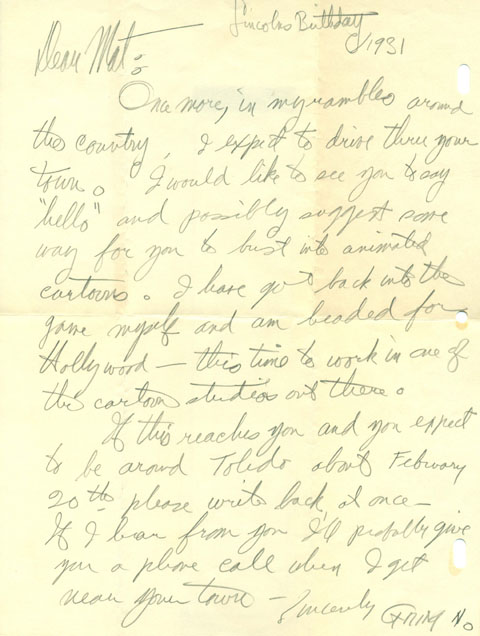 Lincolns Birthday
1931
Dear Mat:
Once more, in my rambles around
the country, I expect to drive thru your
town. I would like to see you to say
"hello" and possibly suggest some
way for you to bust into animated
cartoons. I have got back into the
game myself and am headed for
Hollywood — this time to work in one of
the cartoon studios out there.
If this reaches you and you expect
to be around Toledo about February
20th please write back at once —
If I hear from you I'll probably give
you a phone call when I get
near your town —
Sincerely